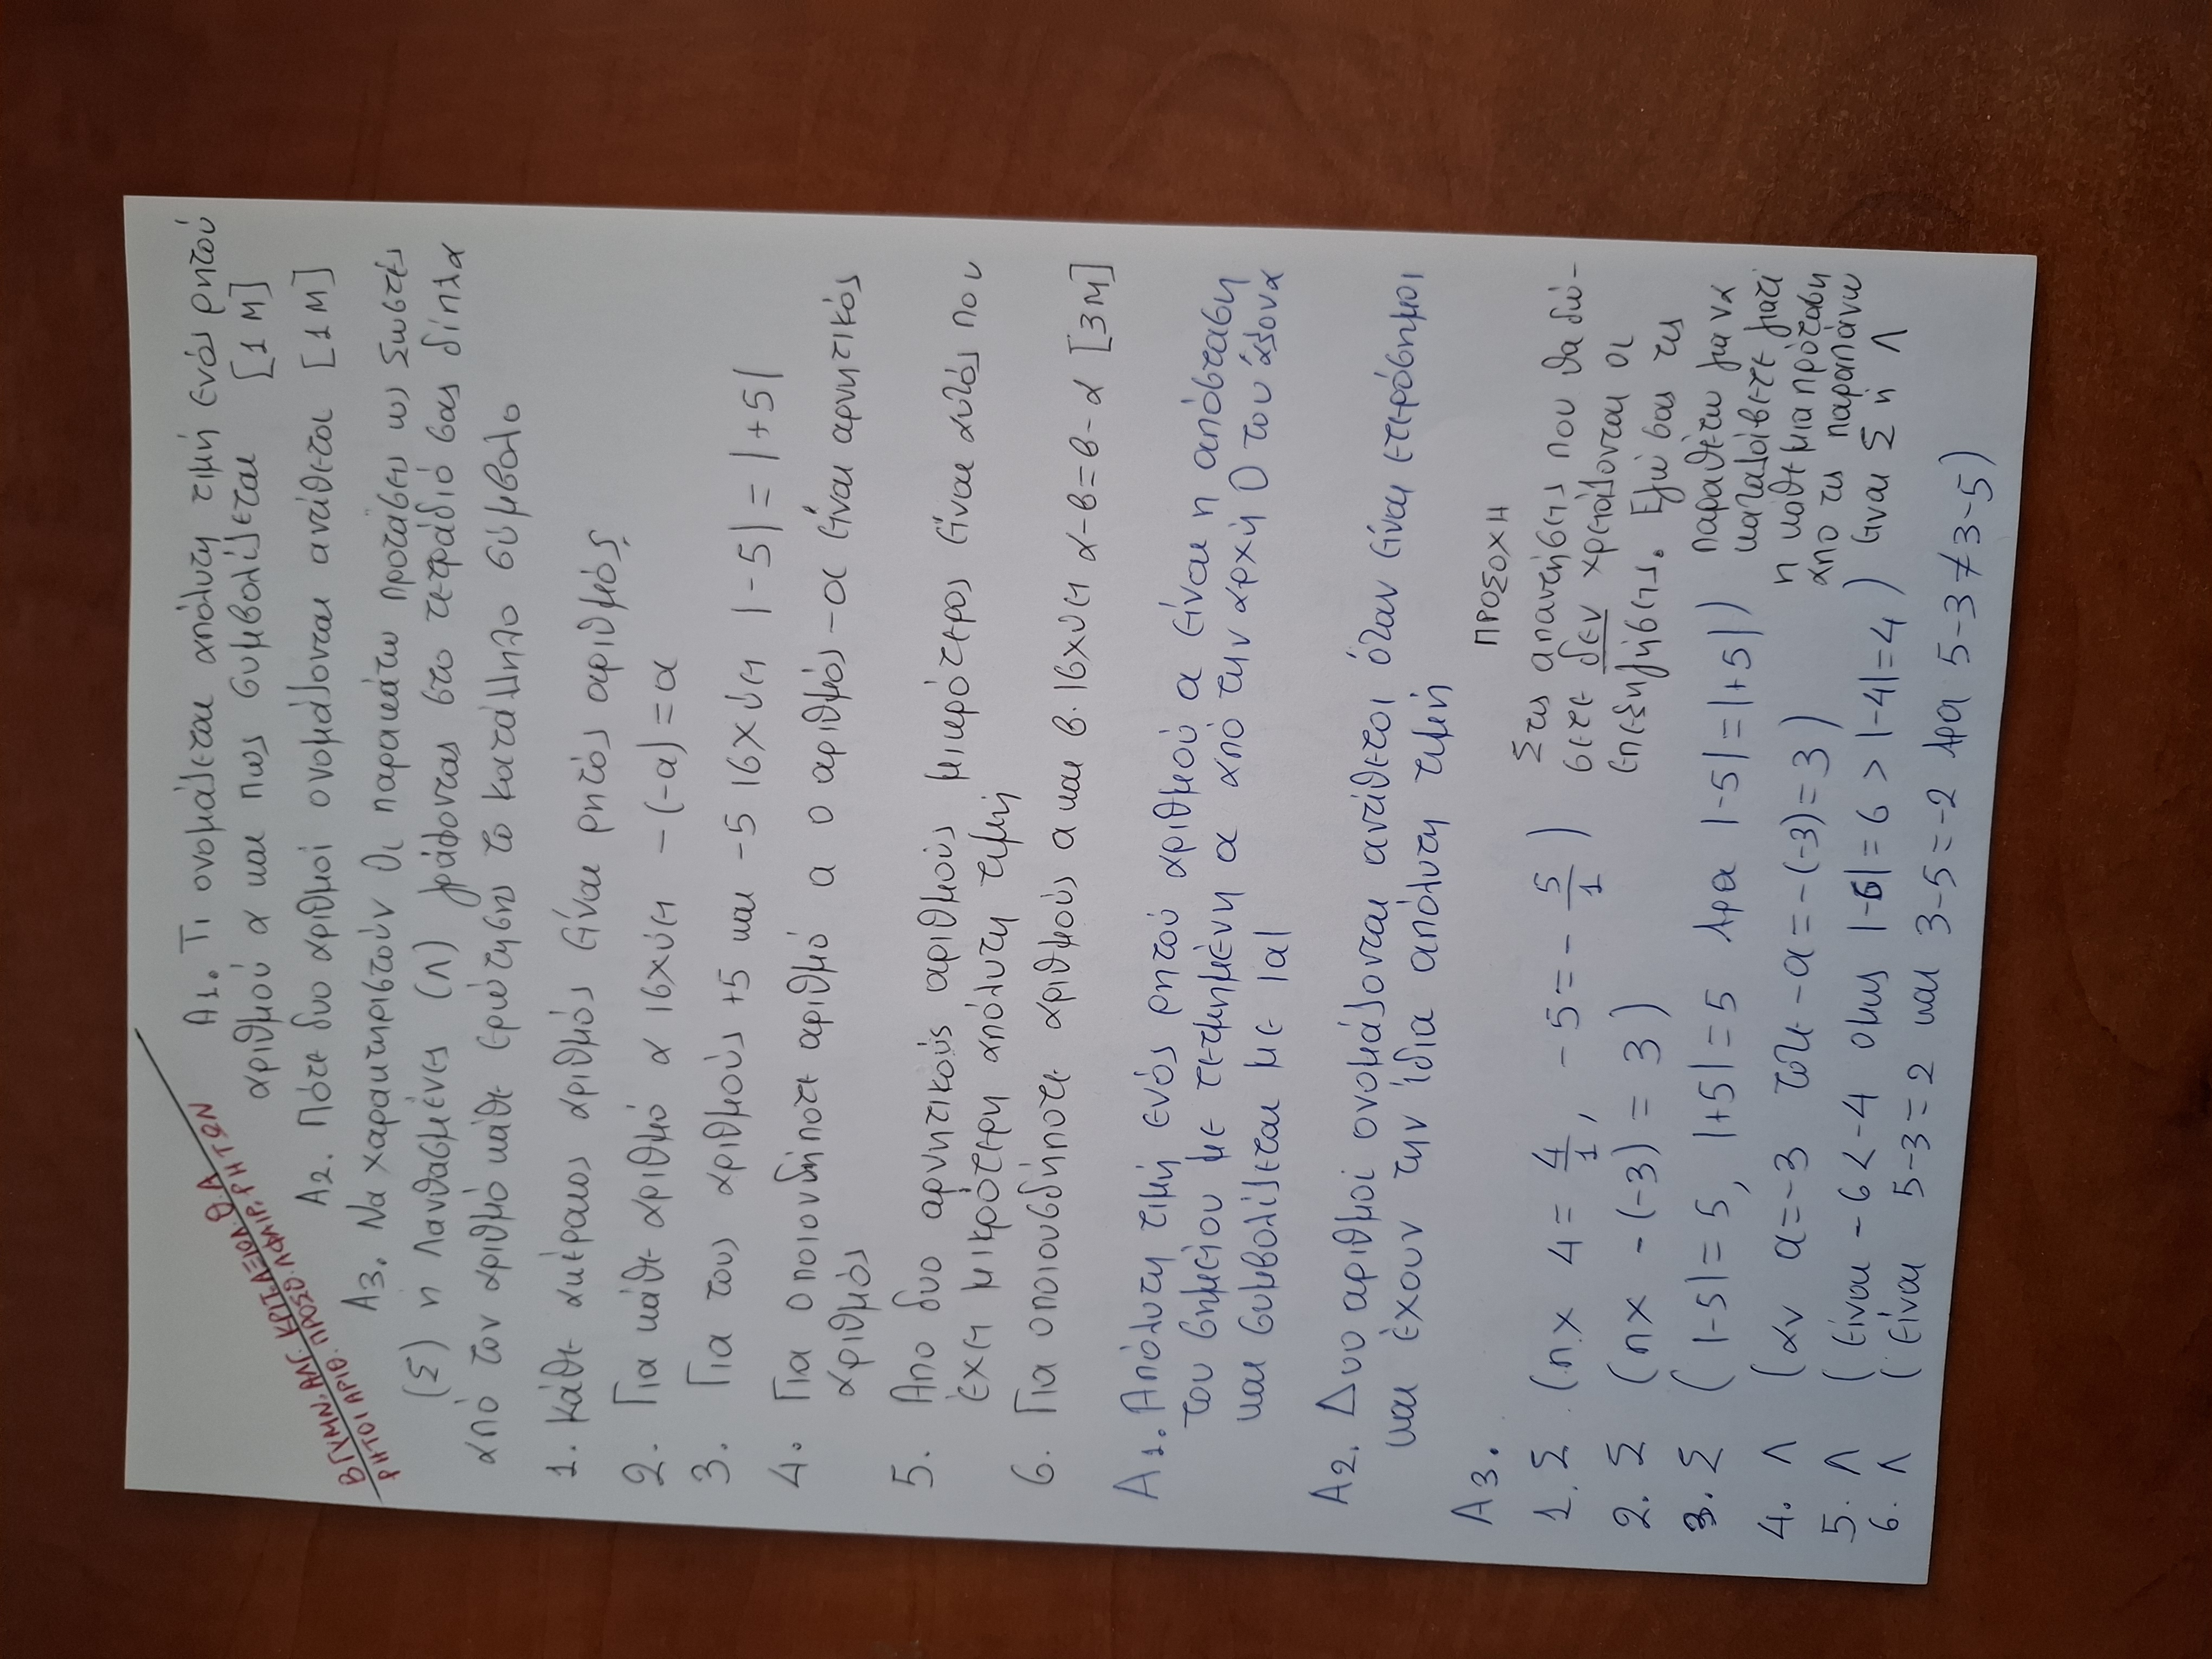 Β ΓΥΜΝ. ΑΛΓ. ΚΡΙΤ. ΑΞΙΟΛ. Θ.Α
ΡΗΤΟΙ ΑΡΙΘ. ΠΡΟΣΘ. ΑΦΑΙΡ. ΡΗΤΩΝ
Α1. Τι ονομάζεται απόλυτη τιμή ενός ρητού
αριθμού α και πως συμβολίζεται [1 Μ]
Α2. Πότε δυο αριθμοί ονομάζονται αντίθετοι [1 Μ]
Α3. Να χαρακτηριστούν οι παρακάτω προτάσεις ως Σωστές
(Σ) η Λανθασμένες (Λ) γράφοντας στο τετράδιό σας δίπλα
από τον αριθμό κάθε ερώτησης το κατάλληλο σύμβολο
1. Κάθε ακέραιος αριθμός είναι ρητός αριθμός
2. Για κάθε αριθμό α ισχύει -(-α)=α
3. Για τους αριθμούς +5 και -5 ισχύει |-5|=|+5|
4. Για οποιονδήποτε αριθμό α ο αριθμός -α είναι αρνητικός
αριθμός
5. Απο δυο αρνητικούς αριθμούς μικρότερος είναι αυτός που
έχει μικρότερη απόλυτη τιμή
6. Για οποιουσδήποτε αριθμούς α και β. ισχύει α-β=β-α [3Μ]
Α1. Απόλυτη τιμή ενός ρητού αριθμού α είναι η απόσταση
του σημείου με τετμημένη α από την αρχή Ο του άξονα
και συμβολίζεται με |α|
Α2. Δυο αριθμοι ονομάζονται αντίθετοι όταν είναι ετερόσημοι
και έχουν την ίδια απόλυτη τιμή
Α3.
ΠΡΟΣΟΧΗ
Στις απαντήσεις που θα δώ-
σετε δεν χρειάζονται οι
επεξηγήσεις. Εγώ σας τις
παραθέτω για να
καταλάβετε γιατί
η κάθε μια πρόταση
απο τις παραπάνω
ειναι Σ η Λ
1. Σ (πχ 4 = 4/1, -5 = -5/1)
2. Σ (πχ -(-3) = 3)
3. Σ (|-5|=5, |+5|=5 Αρα |-5|=|+5|)
4. Λ (αν α=-3 τότε -α=-(-3)=3)
5. Λ (είναι -6<-4 ομως |-6|=6 > |-4|=4)
6. Λ (είναι 5-3=2 και 3-5=-2 Αρα 5-3≠3-5)